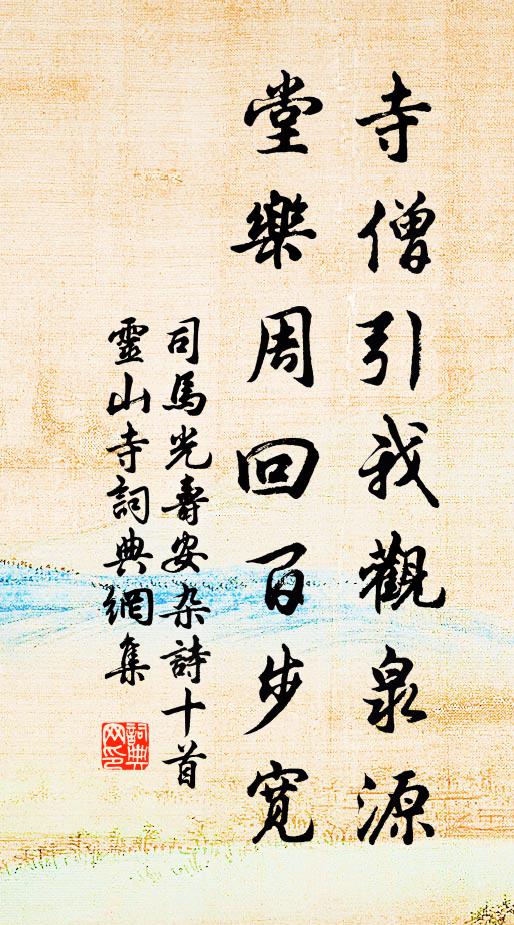 寺僧引我觀泉源
堂樂周回百步寬
司馬光壽安杂詩十首
靈山寺詞典網集
詞典网印